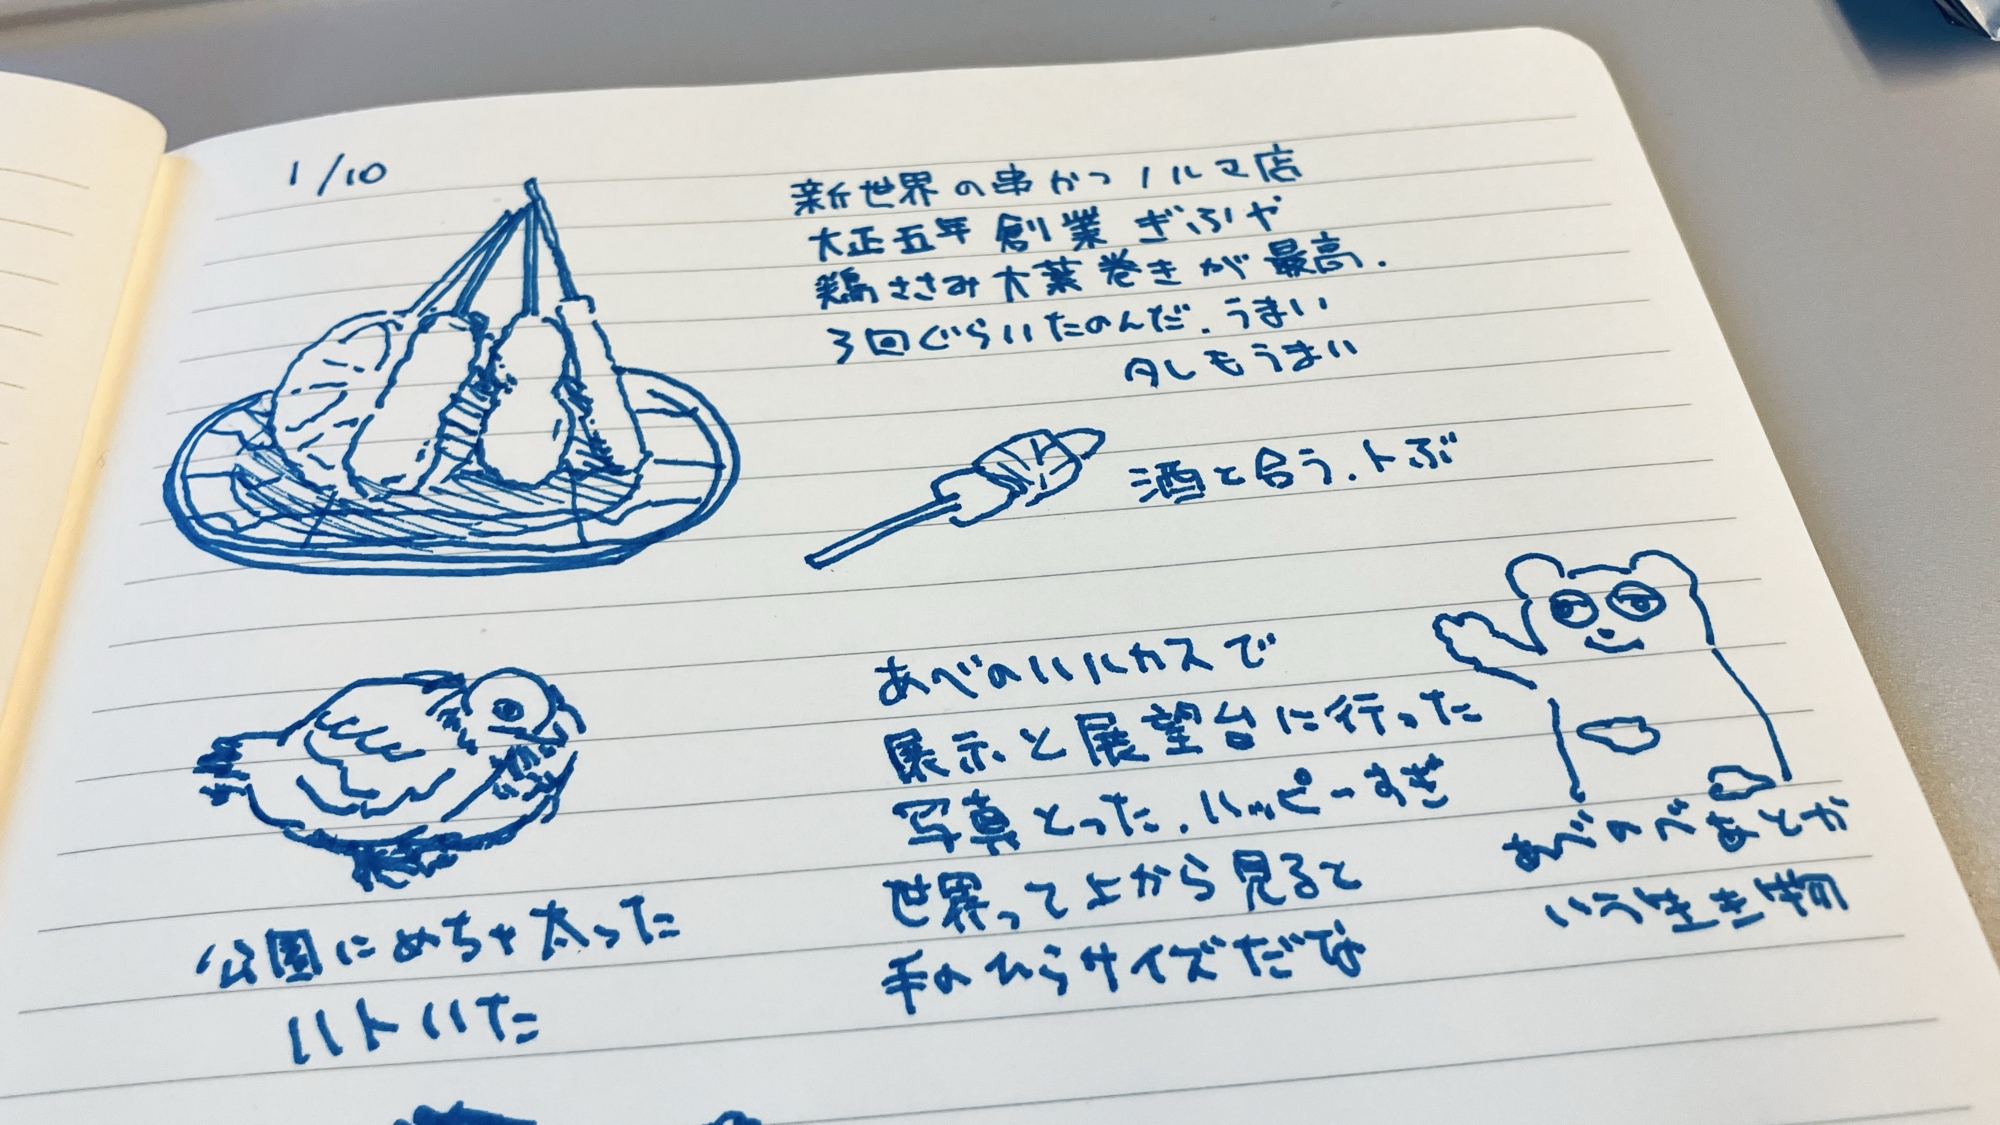 1/10
新世界の串かつノルマ店
大正五年創業ぎふや
鶏ささみ大葉巻きが最高.
3回ぐらいたのんだ.うまい
タレもうまい
酒と合う.トぶ
あべのハルカスで
展示と展望台に行った
写真とった.ハッピーすぎ
世界って上から見ると
手のひらサイズだな
あべのべあとか
いう生き物
公園にめちゃ太った
ハトいた